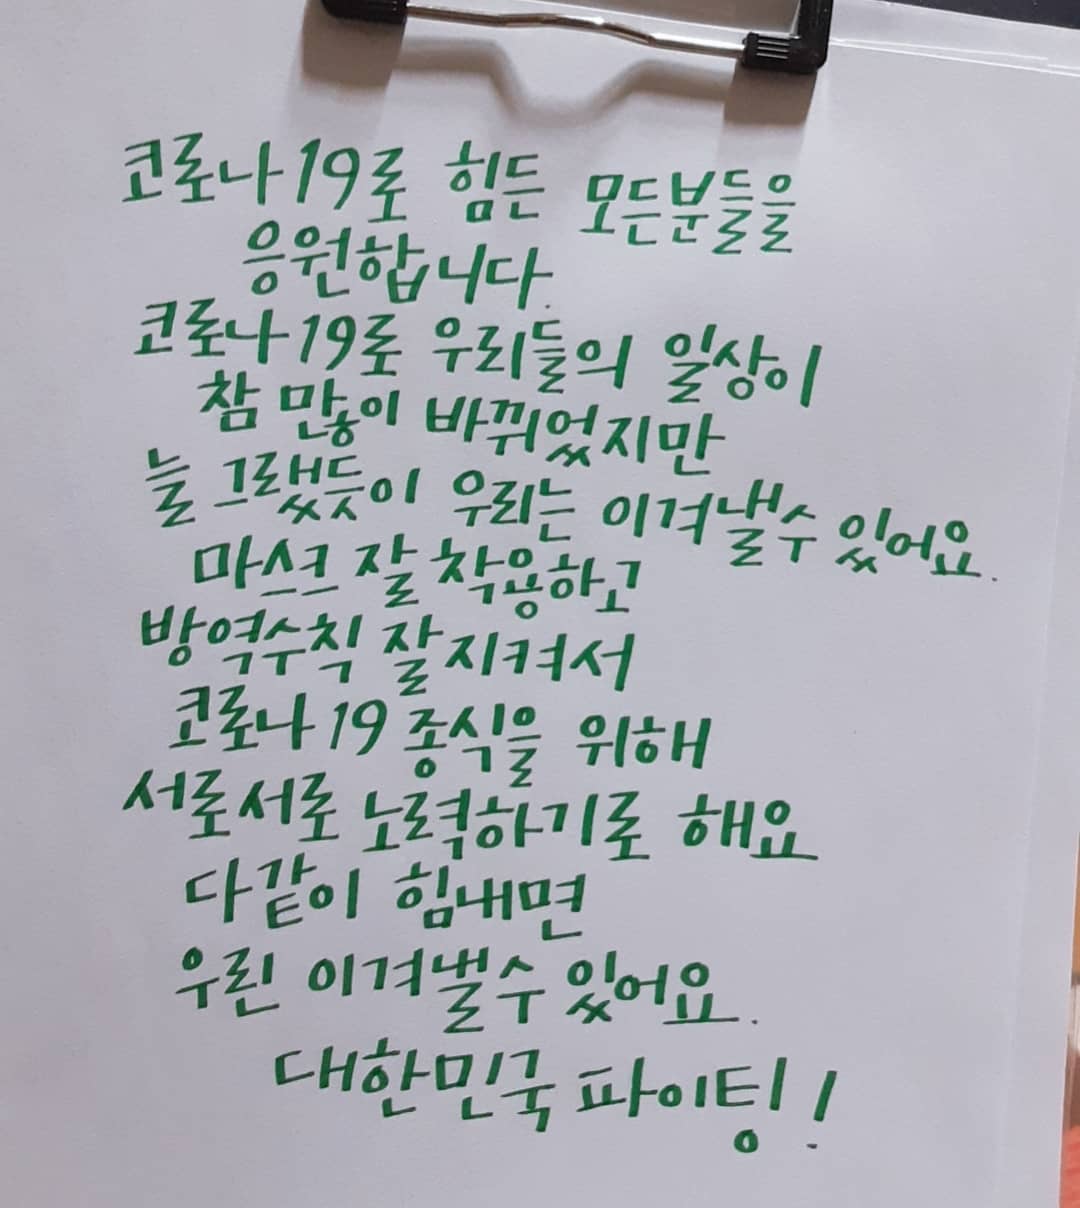 코로나19로 힘든 모든분들을
응원합니다.
코로나19로 우리들의 일상이
참 많이 바뀌었지만
늘 그랬듯이 우리는 이겨낼수 있어요.
마스크 잘 착용하고
방역수칙 잘 지켜서
코로나19 종식을 위해
서로서로 노력하기로 해요
다같이 힘내면
우린 이겨낼수 있어요.
대한민국 파이팅!